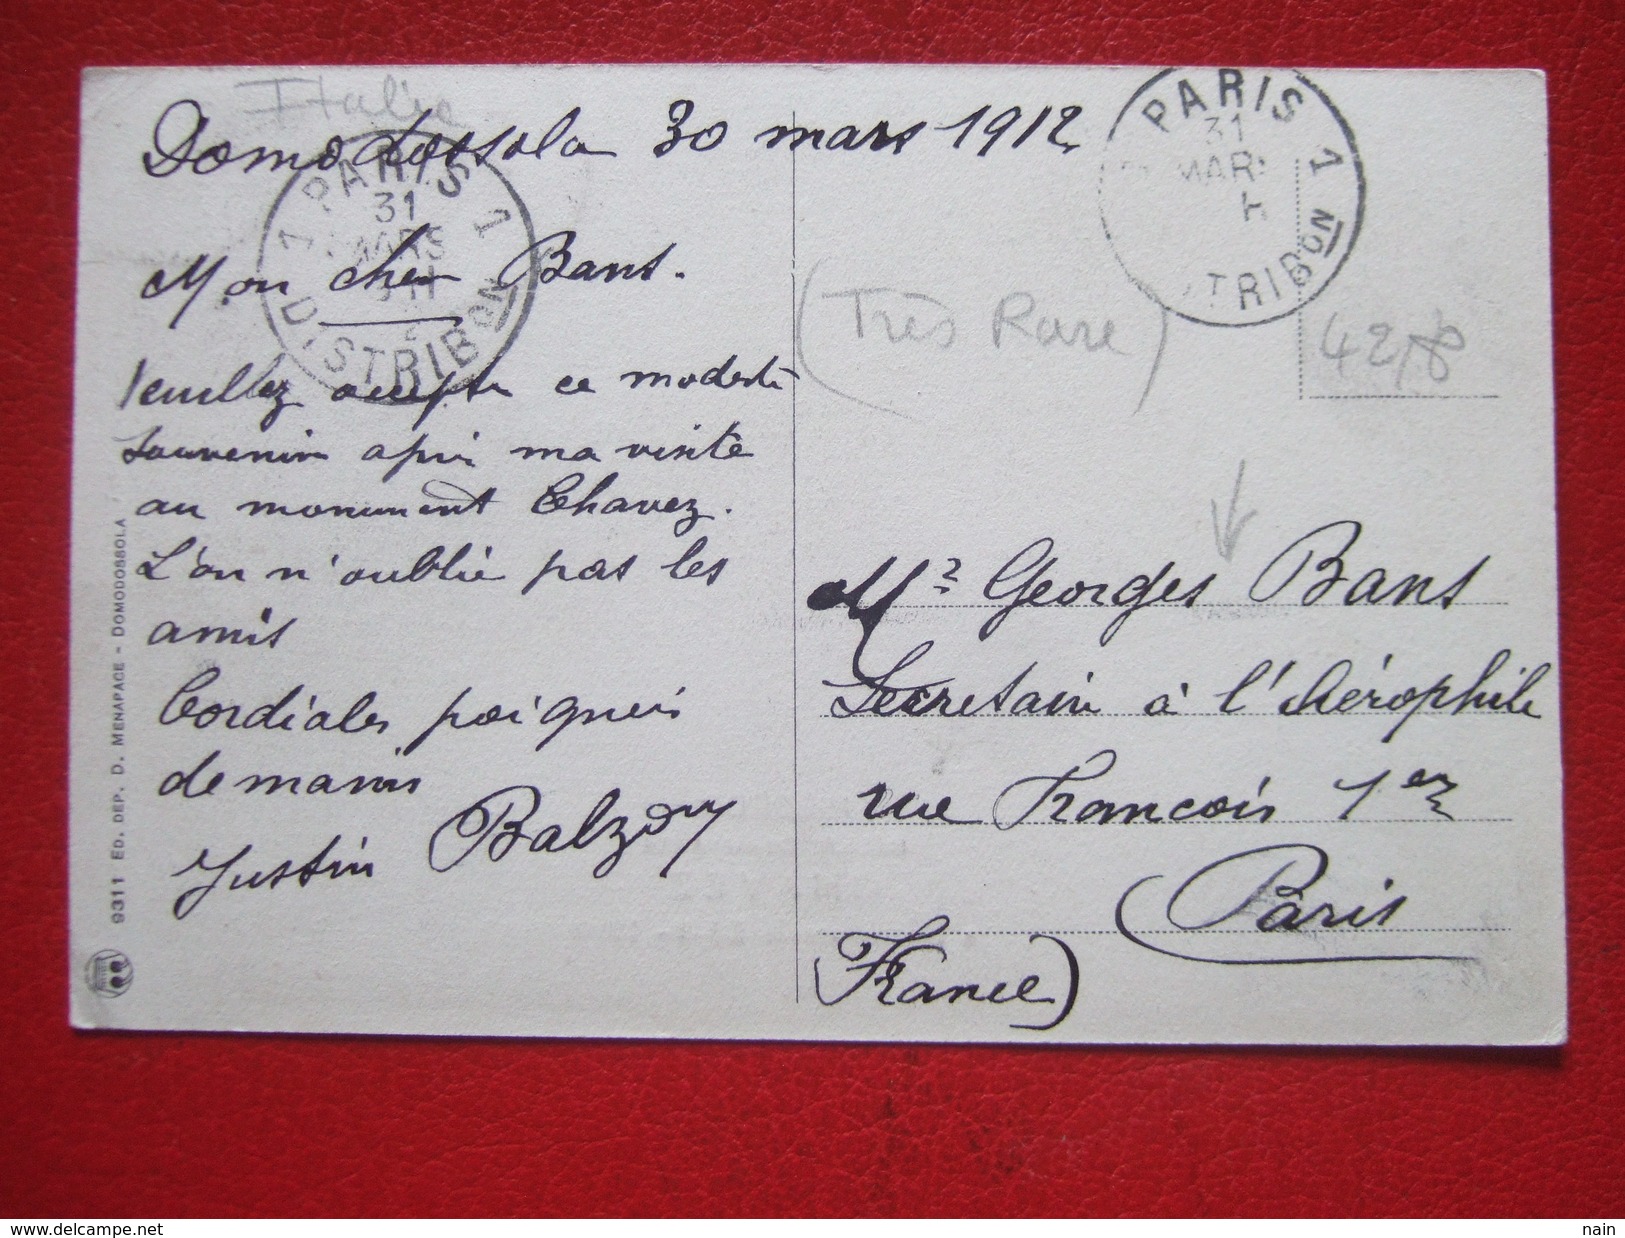 Italie
Domodossola 30 mars 1912
PARIS 1
31
MARS
DISTRIBON
Mon cher Bans.
Veuillez accepter ce modeste
souvenir après ma visite
au monument Chavez.
L'on n'oublie pas les
amis
Cordiales poignées
de mains
Justin Balzon
9311 ED. DEP. D. MENAPACE - DOMODOSSOLA
PARIS 1
31
MARS
TRIBON
(Très Rare)
Mr Georges Bans
Secretain à l'Aérophile
rue François 1er
Paris
(France)
www.delcampe.net
nain